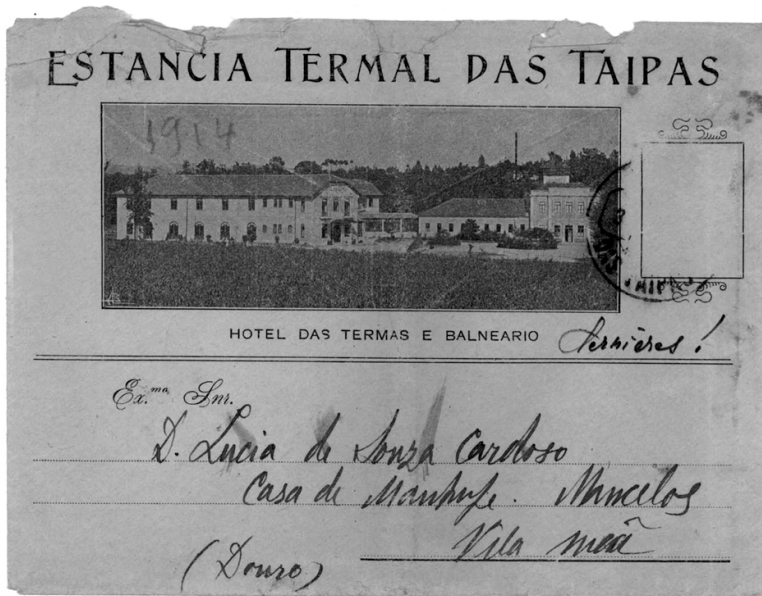 ESTANCIA TERMAL DAS TAIPAS
1914
HOTEL DAS TERMAS E BALNEARIO
Ex.ma Snr.
D. Lucia de Souza Cardoso
Casa de Manhufe. Mancelos
Vila meã
(Douro)